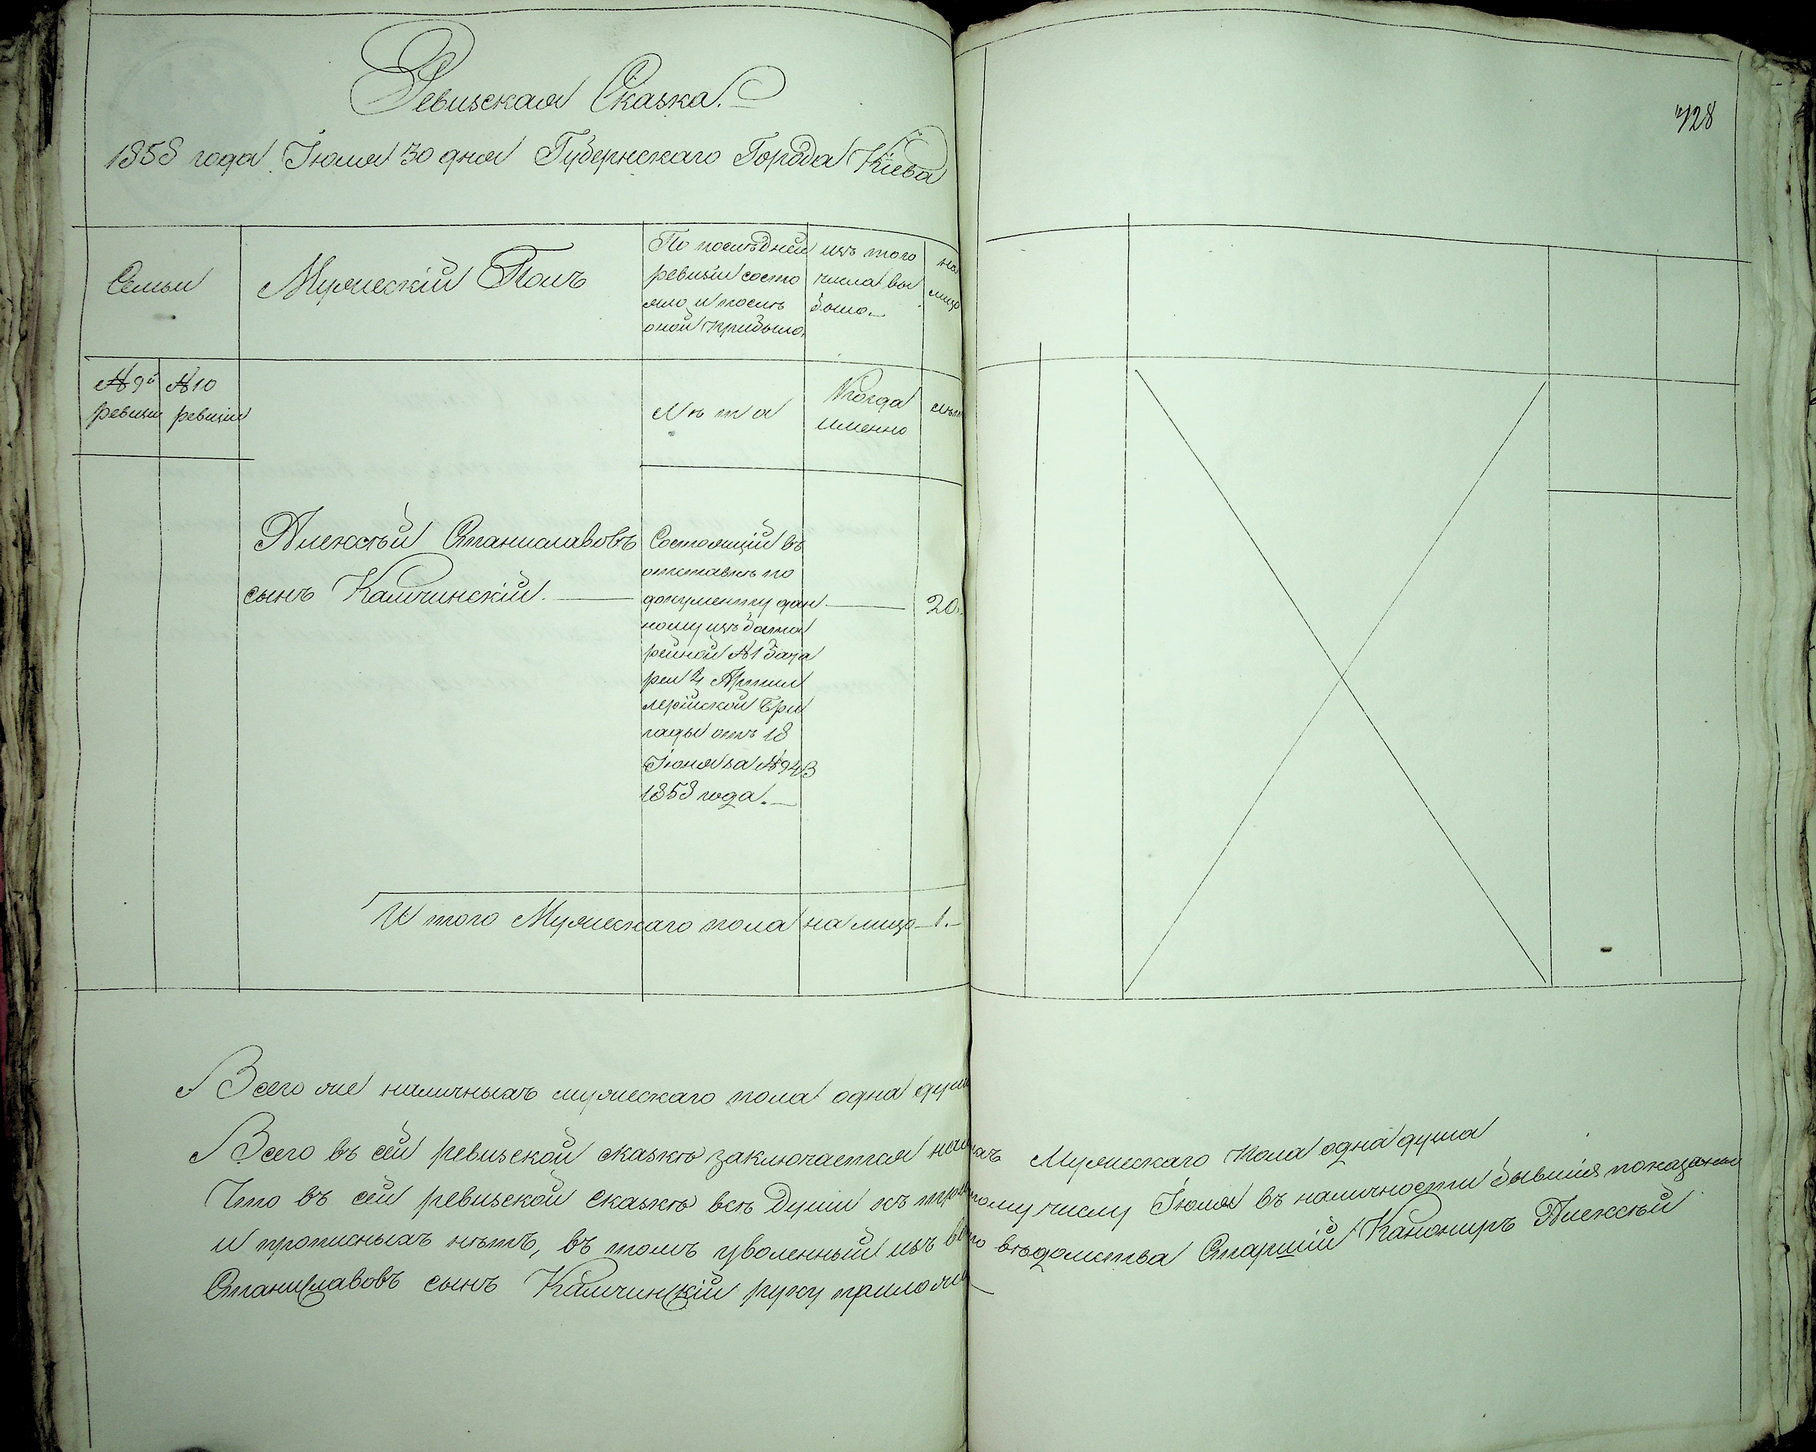 728
Ревизская Сказка.
1858 года Іюля 30 дня Губернскаго Города Кіева
Семьи
Мужескій Полъ
По последней
ревизіи состо
яло и после
оной прибыло,
изъ того
числа вы
было.
на
лицо
№ 9й
ревизіи
№ 10
ревизіи
Лета
Когда
именно
лета
Алексѣй Станиславовъ
сынъ Калчинскій.
Состоящій въ
отставкѣ по
документу дан
ному изъ бата
рейной №1 бата
реи 4 Артил
лерійской Бри
гады отъ 18
Іюня за № 943
1858 года.
20.
И того Мужескаго пола на лицо 1.
Всего же наличныхъ мужескаго пола одна душа
Всего въ сей ревизской сказкѣ заключается наличныхъ Мужескаго пола одна душа
Что въ сей ревизской сказкѣ всѣ Души къ тридцатому числу Іюля въ наличности бывшія показаны
и прописныхъ нѣтъ, въ томъ уволенный изъ военнаго вѣдомства Старшій Канониръ Алексѣй
Станиславовъ сынъ Калчинскій руку приложилъ